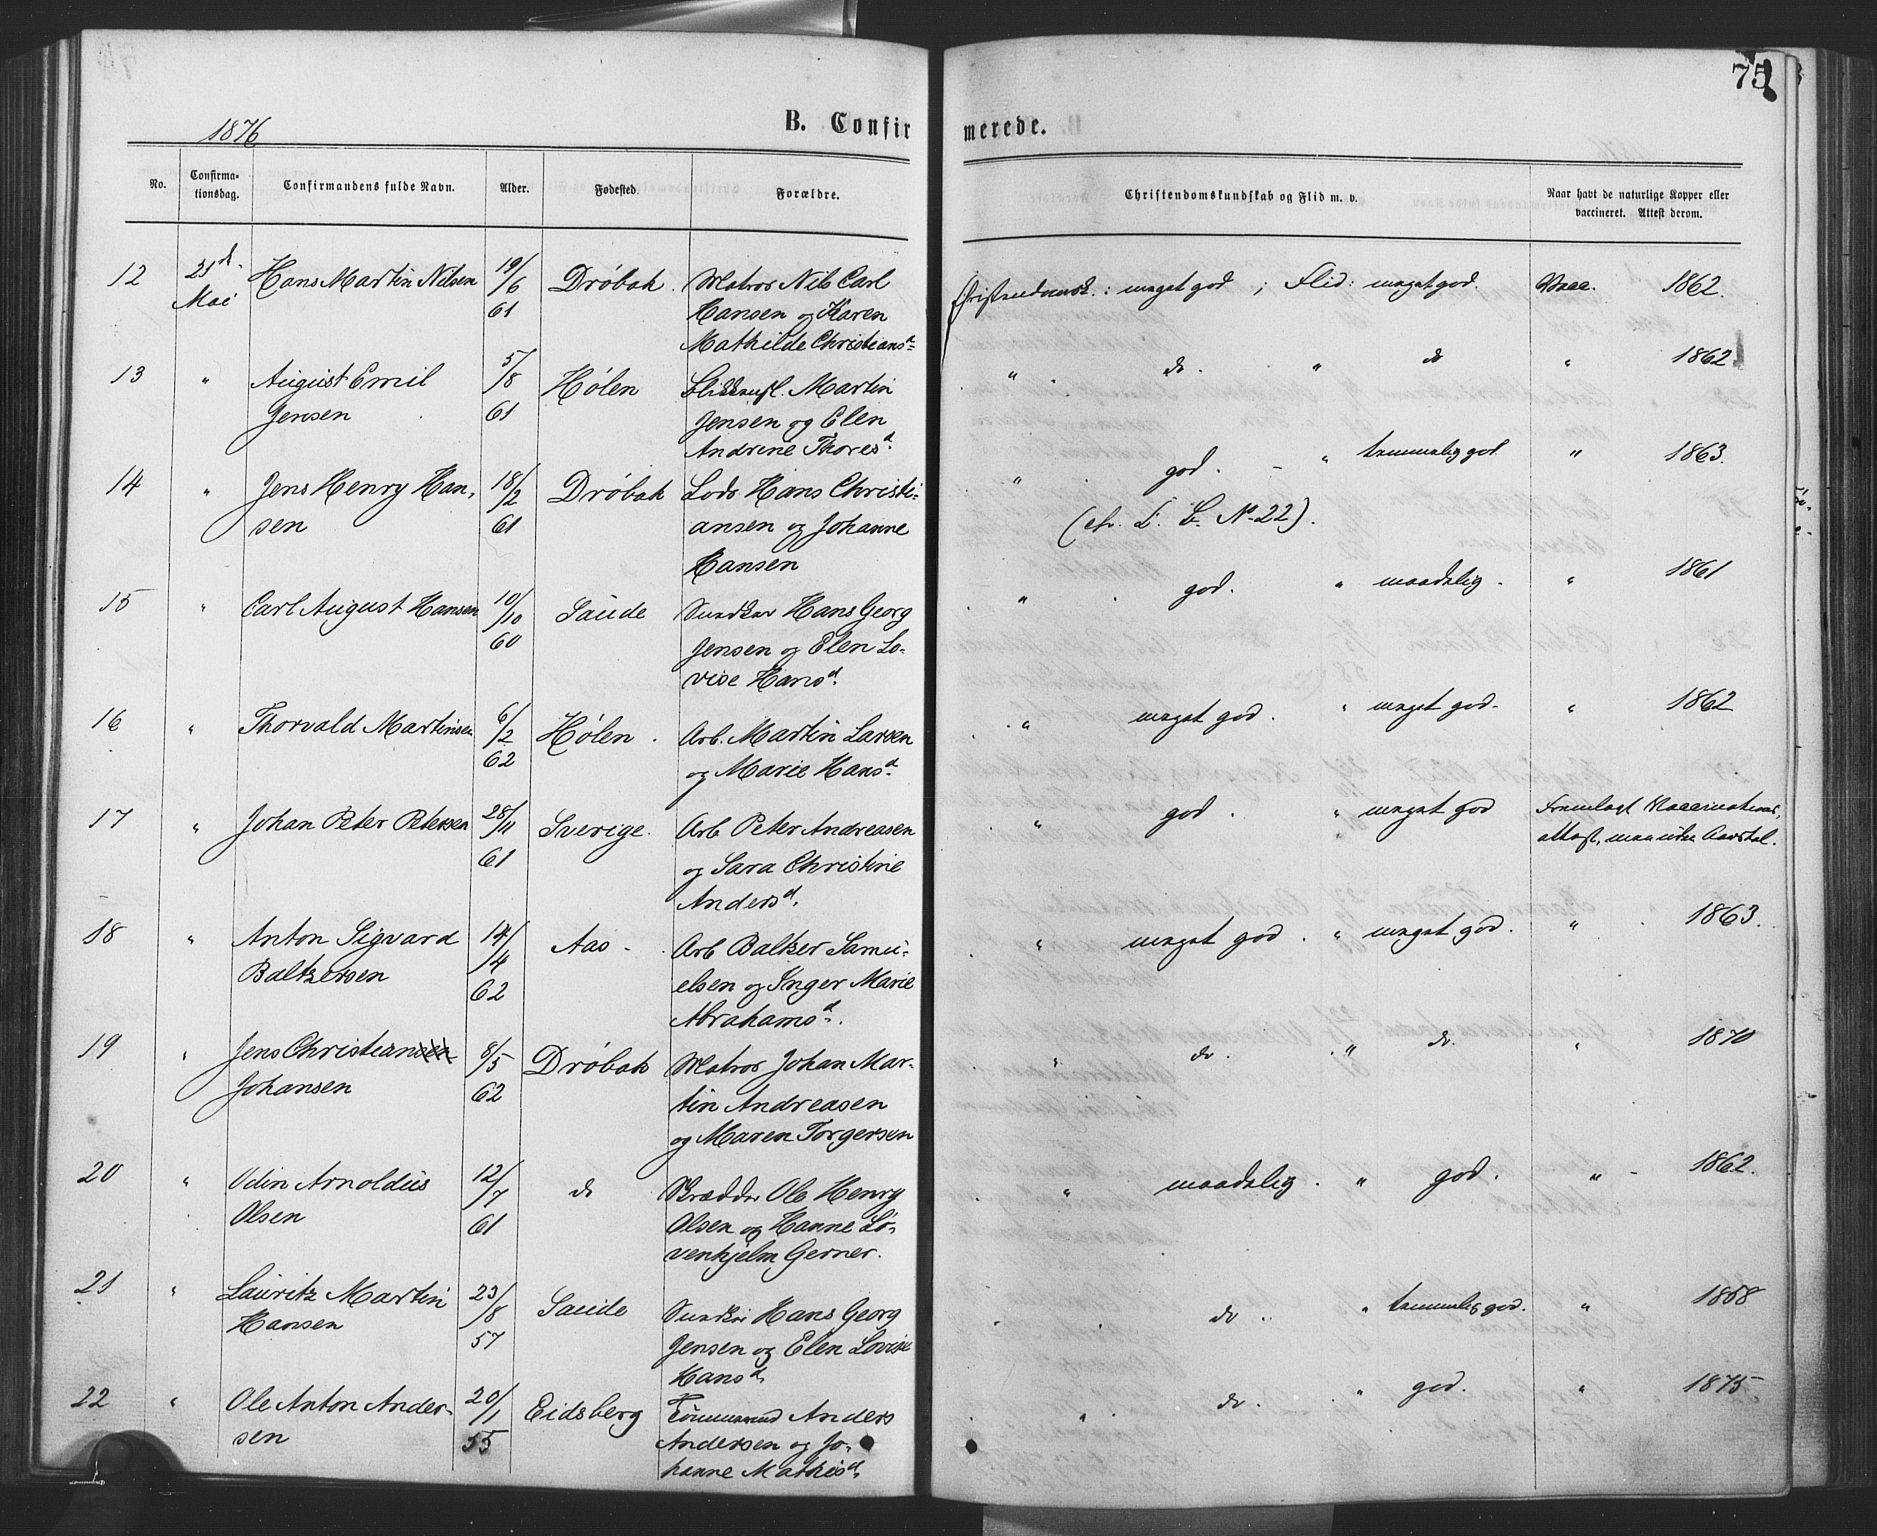 75
1876
B. Confirmerede.
No. Confirma-tionsdag. Confirmandens fulde Navn. Alder. Fødested. Forældre. Christendomskundskab og Flid m. v. Naar havt de naturlige Kopper eller vaccineret. Attest derom.
12 21d. Hans Martin Nilsen 19/6 Drøbak. Matros Nils Carl Christendomsk.: meget god; Flid: meget god. Vacc. 1862.
Mai 61 Hansen og Karen
Mathilde Christiansd.
13 " August Emil 5/8 Hølen Martin " do. " do " 1862
Jensen 61 Jensen og Elen
Andrine Thoresd.
14 " Jens Henry Han- 18/2 Drøbak Lods Hans Christi- " god. " temmelig god " 1863.
sen 61 ansen og Johanne (cfr. No 22).
Hansen
15 " Carl August Hansen 10/10 Saude Hans Georg " god. " maadelig. " 1861
60 Jensen og Elen Lo-
vise Hansd.
16 " Thorvald Martinsen 6/2 Hølen. Arb. Martin Larsen " meget god. " meget god. " 1862
62 og Marie Hansd.
17 " Johan Peter Petersen 28/11 Sverige. Arb Peter Andreasen " god. " meget god Fremlagt Vaccinations-
61 og Sara Christine attest, men uden Aarstal.
Andersd.
18 " Anton Sigvard 14/4 Aas Arb Baltzer Samu- " meget god. " meget god. " 1863.
Baltzersen 62 elsen og Inger Marie
Abrahamsd.
19 " Jens Christiansen 8/5 Drøbak Matros Johan Mar- " do. " do. " 1870
Johansen 62 tin Andreasen
og Maren Torgersen
20 " Odin Arnoldus 12/7 do Skrædder Ole Henry " maadelig. " god. " 1862.
Olsen 61 Olsen og Hanne Lø-
venhjelm Gerner.
21 " Lauritz Martin 23/8 Saude Hans Georg do. " temmelig god. " 1868
Hansen 57 Jensen og Elen Lovise
Hansd.
22 " Ole Anton Ander- 20/1 Eidsberg Tømmermand Anders " do. " god. " 1875
sen 55 Andersen og Jo-
hanne Mathisd.